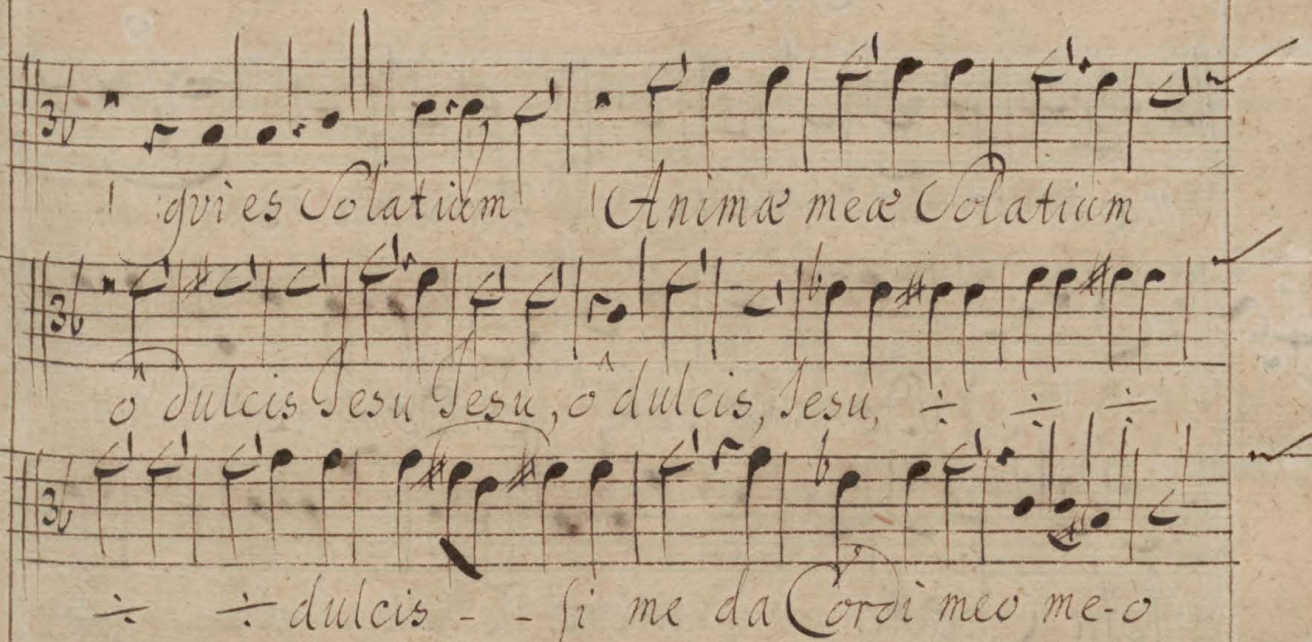 qvi es Solatium Animæ meæ Solatium
ô dulcis Jesu Jesu, ô dulcis, Jesu, ÷ ÷ ÷
÷ ÷ dulcis - - si me da Cordi meo me-o